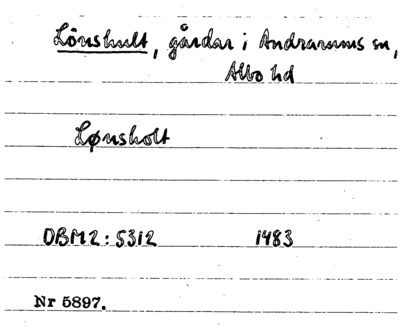 Lönshult, gårdar i Andrarums sn,
Albo hd
Lønsholt
DBM2:5312 1483
Nr 5897.